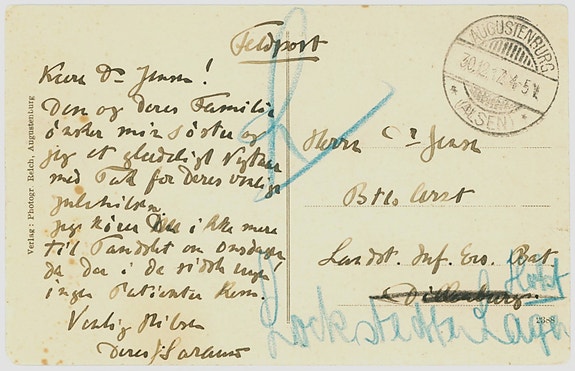 Feldpost
Kære Dr. Jensen!
Dem og Deres Familie
ønsker min Søster og
jeg et glædeligt Nytaar
med Tak for Deres venlige
Julehilsen.
Jeg kører ikke mere
til Tandslet om Onsdagen
da der i de sidste
ingen Patienter kom.
Venlig Hilsen
Deres
Verlag: Photogr. Reich, Augustenburg
AUGUSTENBURG
30.12.17. 4-5 N
* (ALSEN) *
Herrn Dr Jensen
Btls Arzt
Landst. Inf. Ers. Bat.
Dillenburg.
Lockstedter Lager
2388